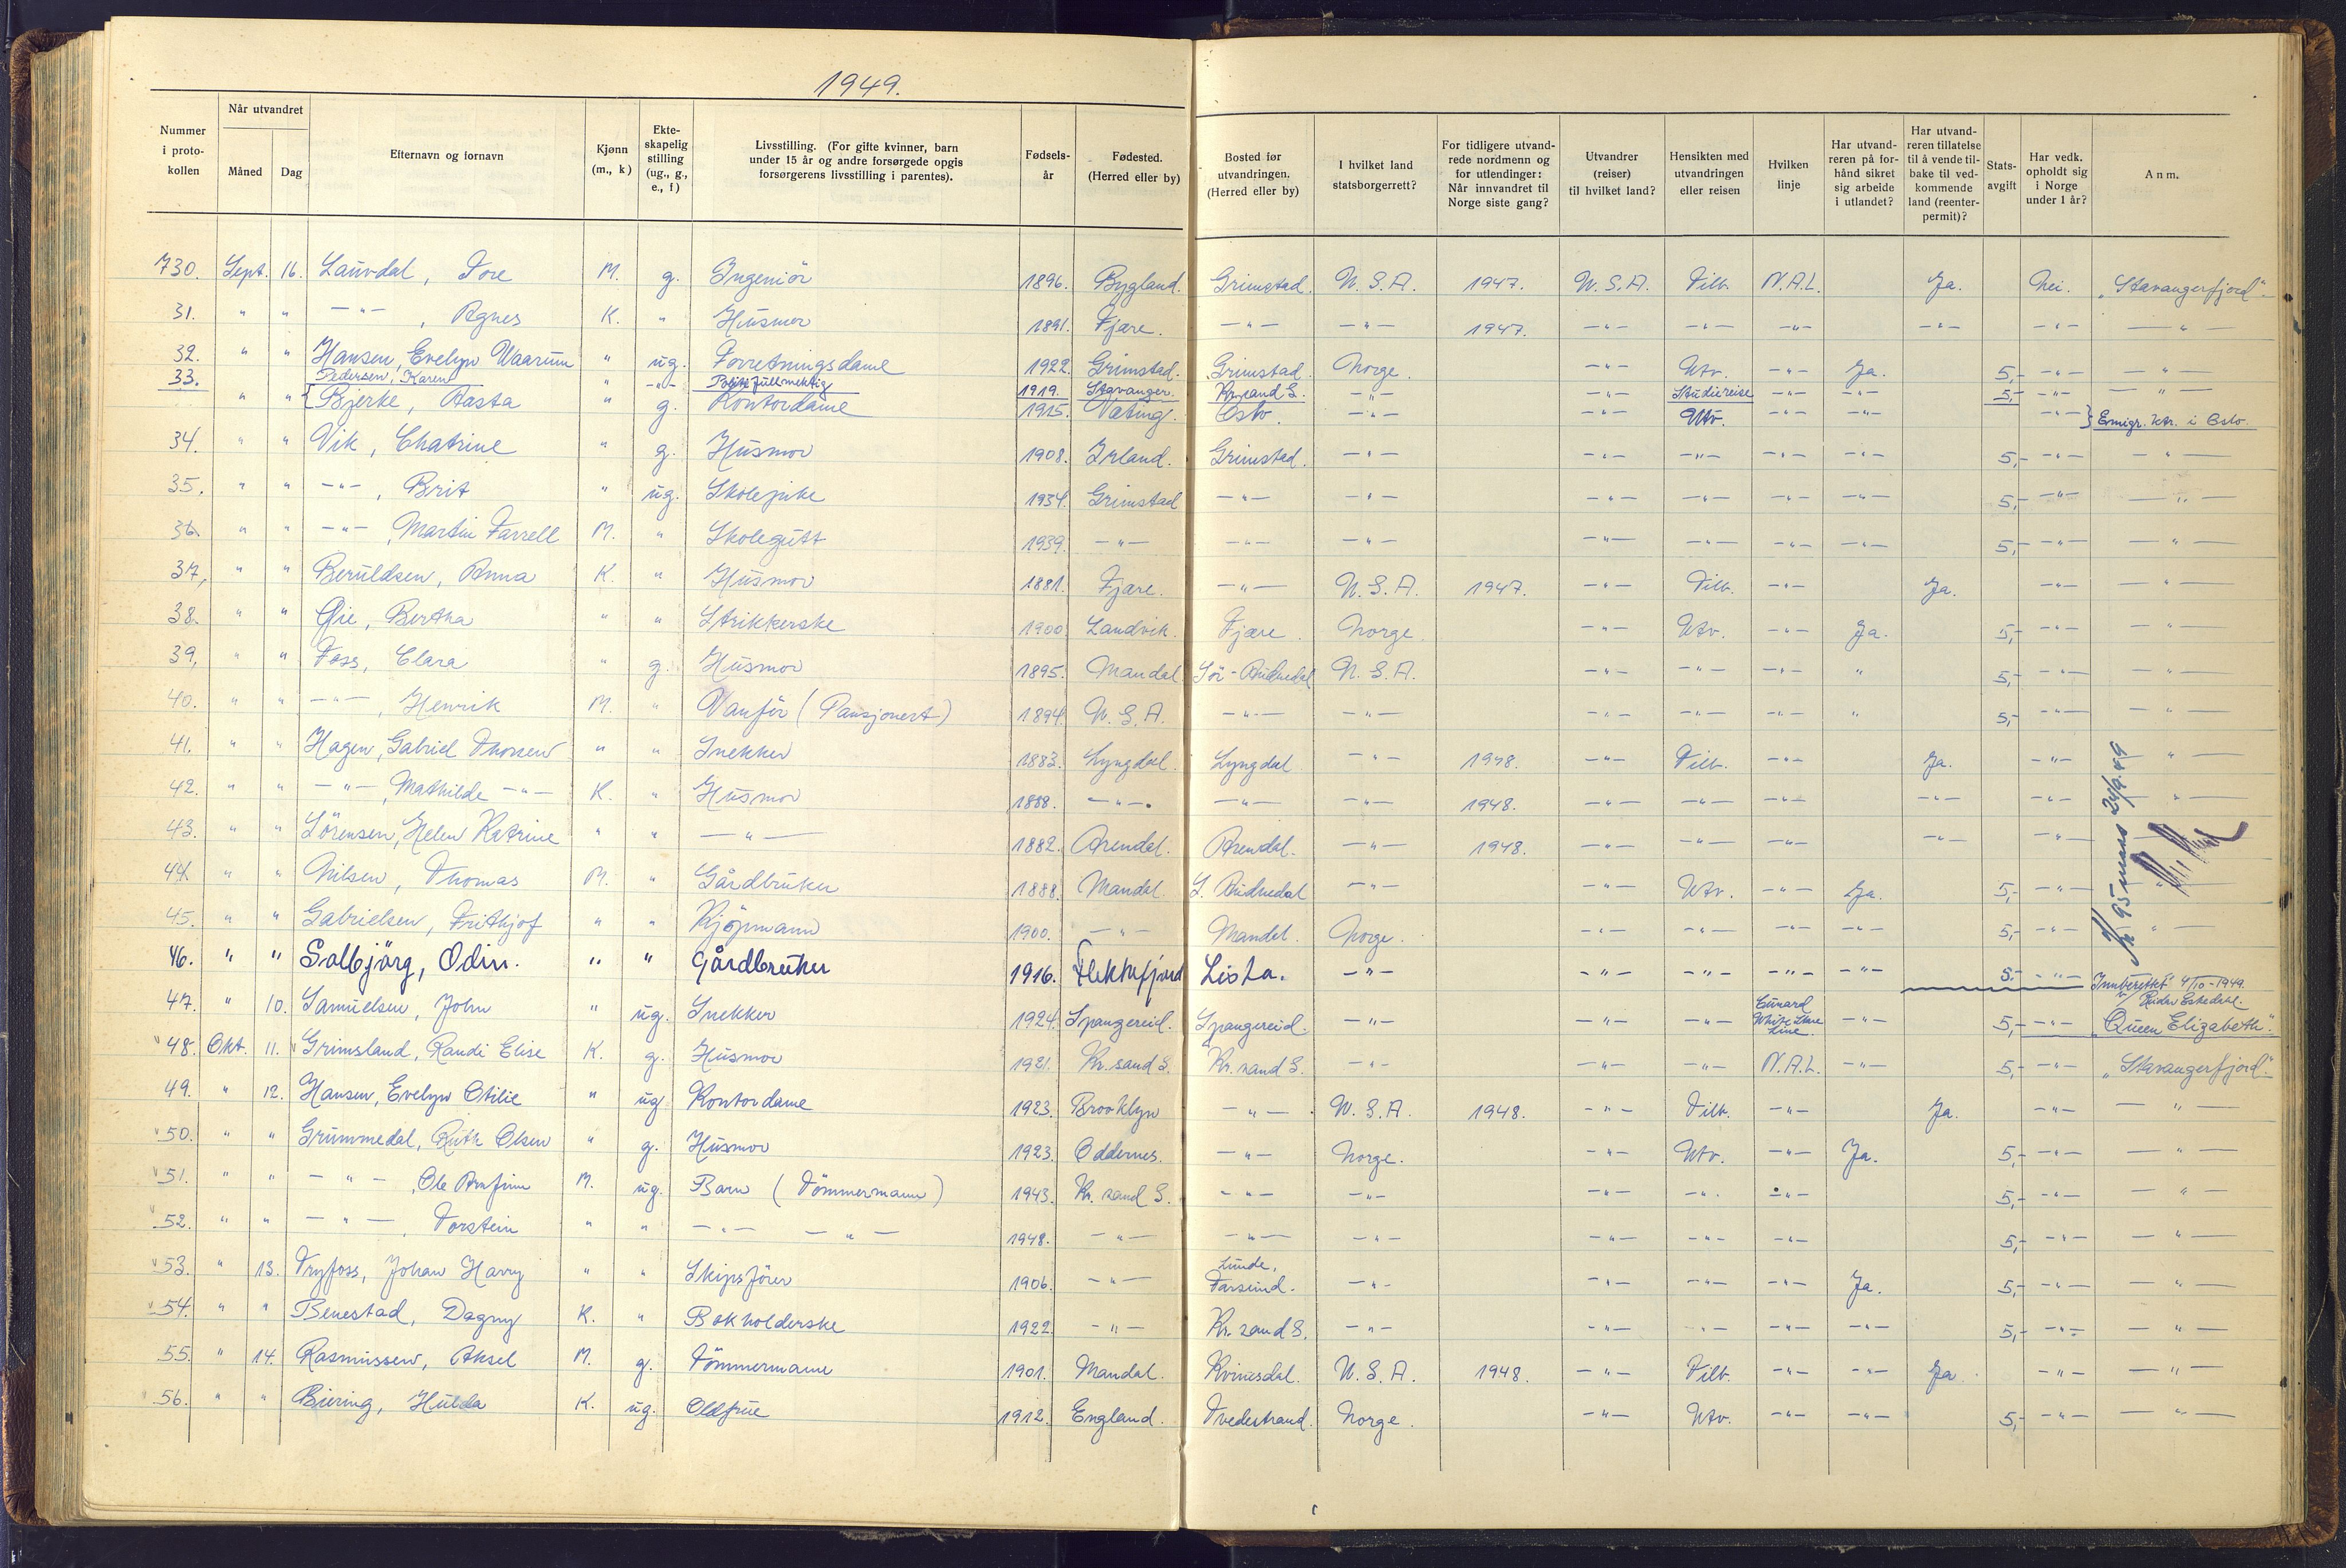 1949.
Nummer i protokollen | Når utvandret Måned | Dag | Efternavn og fornavn | Kjønn (m., k) | Ekteskapelig stilling (ug., g., e., f) | Livsstilling. (For gifte kvinner, barn under 15 år og andre forsørgede opgis forsørgerens livsstilling i parentes). | Fødselsår | Fødested. (Herred eller by) | Bosted før utvandringen. (Herred eller by) | I hvilket land statsborgerrett? | For tidligere utvandrede nordmenn og for utlendinger: Når innvandret til Norge siste gang? | Utvandrer (reiser) til hvilket land? | Hensikten med utvandringen eller reisen | Hvilken linje | Har utvandreren på forhånd sikret sig arbeide i utlandet? | Har utvandreren tillatelse til å vende tilbake til vedkommende land (reenterpermit)? | Statsavgift | Har vedk. opholdt sig i Norge under 1 år? | Anm.
730. Sept. 16. Lauvdal, Tore M. g. Ingeniör 1896. Bygland. Grimstad. U.S.A. 1947. U.S.A. Tilb. N.A.L. Ja. Nei. "Stavangerfjord".
31. " " —"— , Agnes K. " Husmor 1891. Fjære. —"— —"— 1947. —"— —"— —"— —"— —"— —"—
32. " " Hansen, Evelyn Waarum " ug. Forretningsdame 1922. Grimstad. Grimstad. Norge. —"— Utv. —"— Ja. 5,- —"— —"—
33. Pedersen, Karen " —"— Politifullmektig 1919. Stavanger. Kr.sand S. —"— —"— Studiereise —"— —"— 5,- —"— —"—
" " Bjerke, Aasta " g. Kontordame 1915. Våting. Oslo. —"— —"— Utv. —"— —"— —"— Emigr. ktr. i Oslo.
34. " " Vik, Chatrine " g. Husmor 1908. Irland. Grimstad. —"— —"— —"— —"— —"— 5,- —"— —"—
35. " " —"— , Brit " ug. Skolepike 1934. Grimstad —"— —"— —"— —"— —"— —"— 5,- —"— —"—
36. " " —"— , Martin Farrell M. " Skolegutt 1939. —"— —"— —"— —"— —"— —"— —"— 5,- —"— —"—
37, " " Beruldsen, Anna K. " Husmor 1881. Fjære. —"— U.S.A. 1947. —"— Tilb. —"— Ja. —"— —"—
38. " " Øie, Bertha " " Strikkerske 1900 Landvik. Fjære. Norge. —"— Utv. —"— Ja. 5,- —"— —"—
39, " " Foss, Clara " g. Husmor 1895. Mandal. Sör-Audnedal U.S.A. —"— —"— —"— " 5,- —"— —"—
40. " " —"— , Henrik M. " Vanför (Pansjonert) 1894. U.S.A. —"— —"— —"— —"— —"— " 5,- —"— —"—
41. " " Hagen, Gabriel Thorsen " " Snekker 1883. Lyngdal. Lyngdal. —"— 1948. —"— Tilb. —"— Ja. —"— —"—
42. " " —"—, Mathilde —"— K. " Husmor 1888. —"— —"— —"— 1948. —"— —"— —"— —"— —"— —"—
43. " " Sörensen, Helen Katrine " " —"— 1882. Arendal. Arendal. —"— 1948. —"— —"— —"— —"— —"—
44. " " Nilsen, Thomas M. " Gårdbruker 1888. Mandal. S. Audnedal —"— —"— Utv. —"— Ja. 5,- —"— "
45. " " Gabrielsen, Frithjof " " Kjöpmann 1900. —"— Mandal. Norge. —"— —"— —"— —"— 5,- —"— "
46. " " Solbjörg, Odin. " " Gårdbruker 1916. Flekkefjord Lista. —"— —"— —"— —"— —"— 5.- —"—
Kr 95 24/9-49
Innberettet 4/10-1949.
47. " 10. Samuelsen, John " ug. Snekker 1924. Spangereid. Spangereid. —"— —"— —"— Cunard White Star Line. —"— 5,- —"— "Queen Elizabeth".
48. Okt. 11. Grimsland, Randi Elise K. g. Husmor 1921. Kr.sand S. Kr.sand S. —"— —"— —"— N.A.L. —"— 5,- —"— "Stavangerfjord".
49. " 12. Hansen, Evelyn Otilie " ug Kontordame 1923. Brooklyn —"— U.S.A. 1948. —"— Tilb. —"— Ja. —"— —"—
50. " " Grummedal, Ruth Olsen " g. Husmor 1923. Oddernes. —"— Norge. —"— Utv. —"— Ja. 5,- —"— —"—
51. " " —"— , Ole Arnfinn M. ug. Barn (Tömmermann) 1943. Kr.sand S. —"— —"— —"— —"— —"— 5,- —"— —"—
52. " " —"— , Torstein " " —"— —"— 1948. —"— —"— —"— —"— —"— —"— 5,- —"— —"—
53. " 13. Tryfoss, Johan Harry " " Skipsförer 1906. —"— Lunde, Farsund. —"— —"— —"— —"— Ja. 5,- —"— —"—
54. " " Benestad, Dagny K. " Bokholderske 1922. —"— Kr.sand S. —"— —"— —"— —"— —"— 5,- —"— —"—
55. " 14. Rasmussen, Aksel M. g. Tömmermann 1901. Mandal. Kvinesdal. U.S.A. 1948. —"— Tilb. —"— —"— Ja. —"— —"—
56. " " Biering, Hulda K. ug. Oldfrue 1912. England. Tvedestrand. Norge. —"— Utv. —"— —"— 5,- —"— —"—